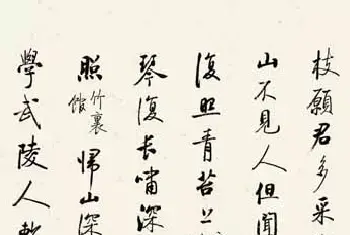 枝願君多采
山不見人但聞
復照青苔上
琴復長嘯深
照竹裏館歸山深
學武陵人暫